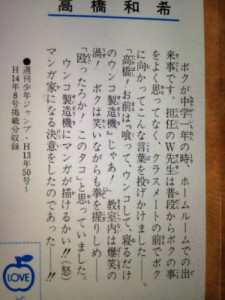 高橋和希
ボクが中学一年の時、ホームルームでの出
来事です。担任のW先生は普段からボクの事
をよく思ってなく、クラスメートの前でボク
に向かってこんな言葉を投げかけました――
「高橋！お前は『喰って、ウンコして、寝るだけ
のウンコ製造機』じゃあ！」教室内は爆笑の
渦！ボクは笑いながらも拳を握りしめ――
「殴ったろか！このタコ」と思っていました。
ウンコ製造機にマンガが描けるかい!!（怒）
マンガ家になる決意をしたのであった――!!
●週刊少年ジャンプ・H13年50号～
H14年8号掲載分収録
LOVE